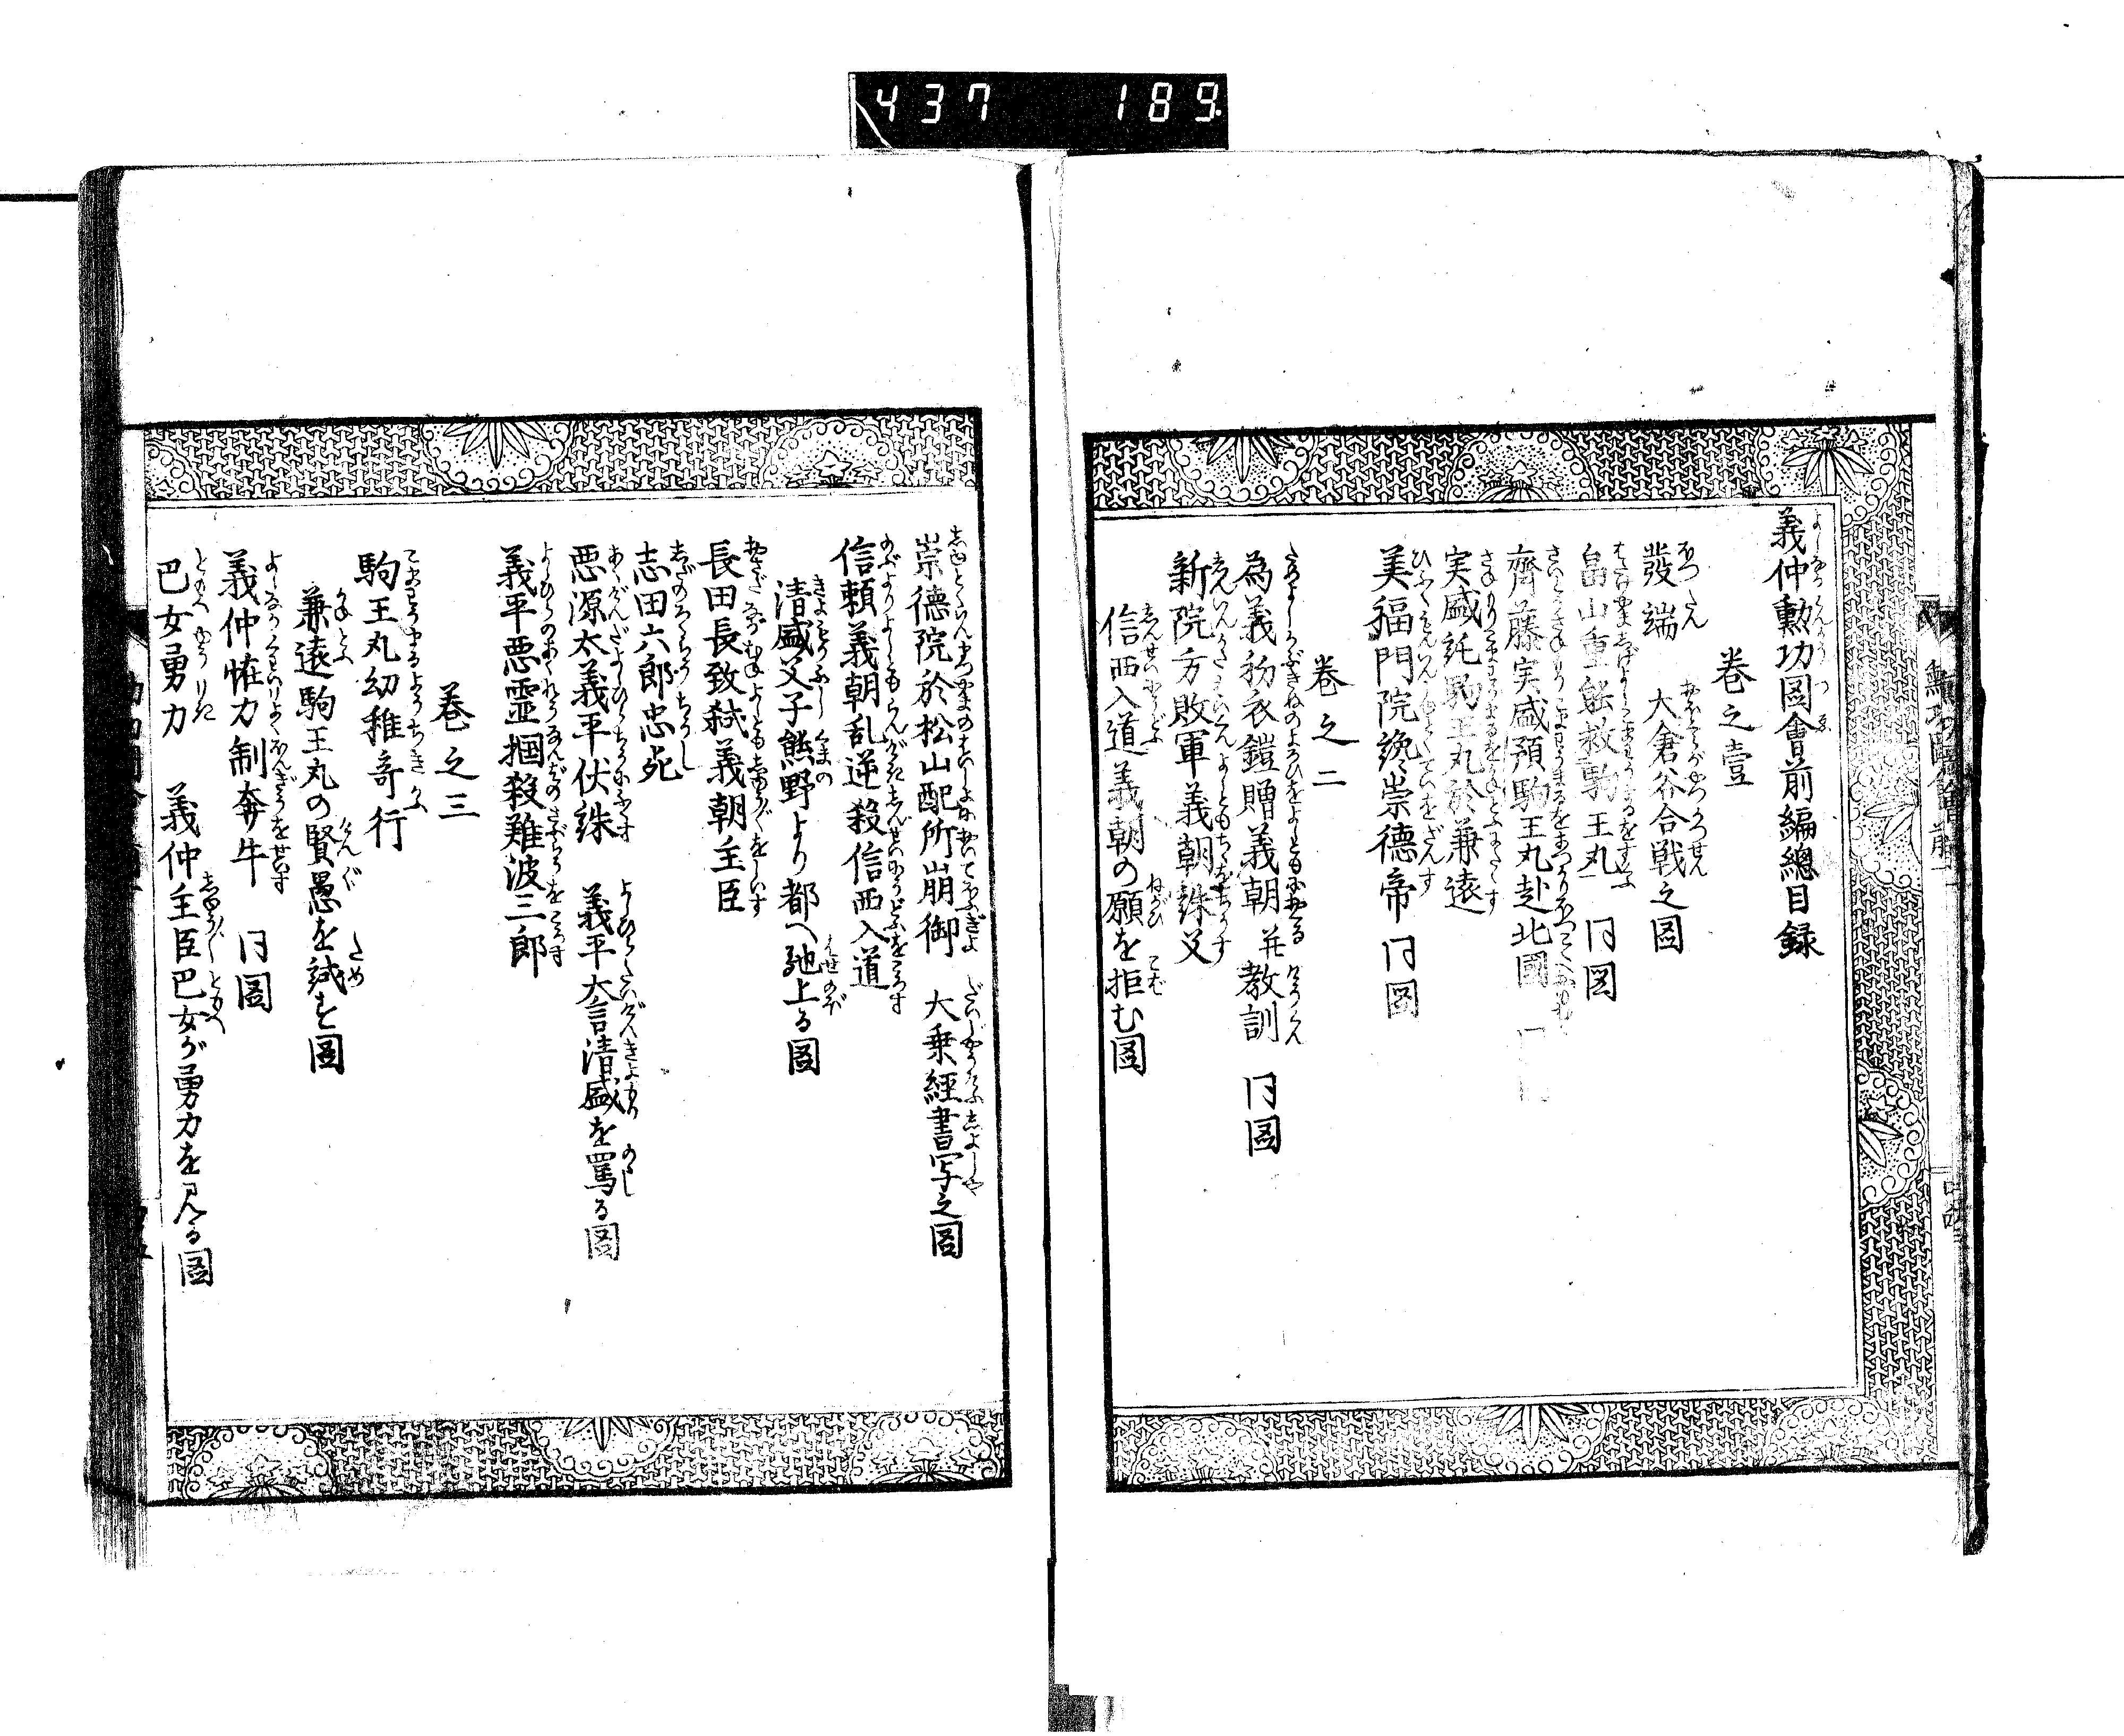 437 189
義仲勲功圖會前編總目録
巻之壹
發端 大倉谷合戦之圖
畠山重能救駒王丸 同圖
齊藤実盛預駒王丸赴北國
実盛託駒王丸於兼遠
美福門院讒崇徳帝 同圖
巻之二
為義初衣鎧贈義朝并教訓 同圖
新院方敗軍義朝誅父
信西入道義朝の願を拒む圖
崇徳院於松山配所崩御 大乗經書写之圖
信頼義朝乱逆殺信西入道
清盛父子熊野より都へ馳上る圖
長田長致弑義朝主臣
志田六郎忠死
悪源太義平伏誅 義平大言清盛を罵る圖
義平悪霊掴殺難波三郎
巻之三
駒王丸幼稚竒行
兼遠駒王丸の賢愚を試す圖
義仲恠力制奔牛 同圖
巴女勇力 義仲主臣巴女が勇力を見る圖